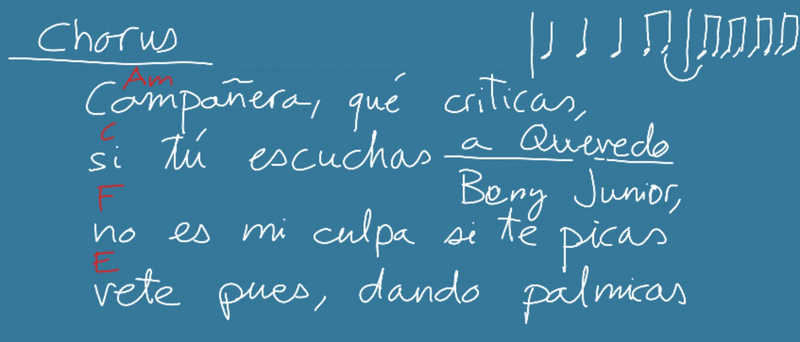 Chorus
Am
Campañera, qué criticas,
C
si tú escuchas a Quevedo
Beny Junior,
F
no es mi culpa si te picas
E
vete pues, dando palmicas